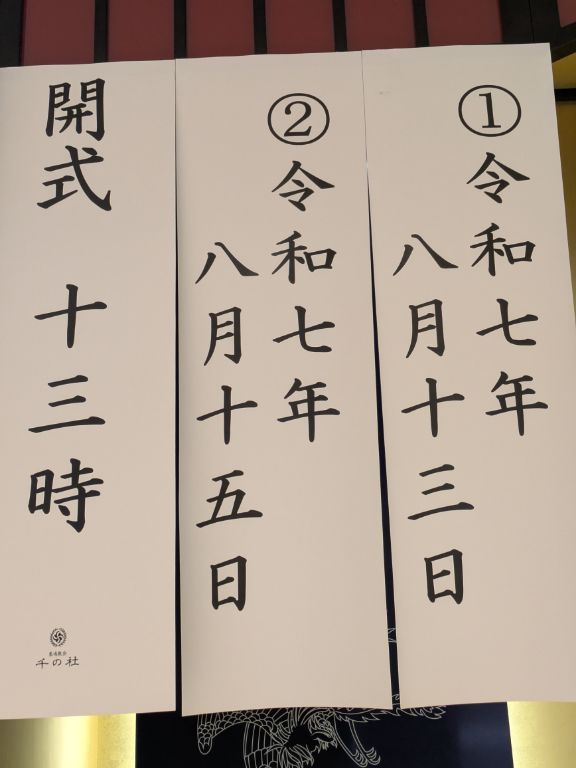 ①令和七年
八月十三日
②令和七年
八月十五日
開式 十三時
千の社